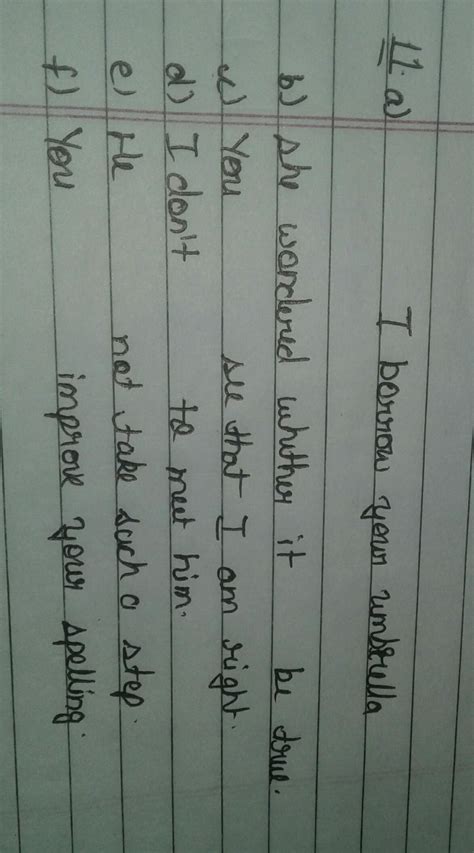 11. a) I borrow your umbrella
b) she wondered whether it be true.
c) You see that I am right.
d) I don't to meet him.
e) He not take such a step.
f) You improve your spelling.